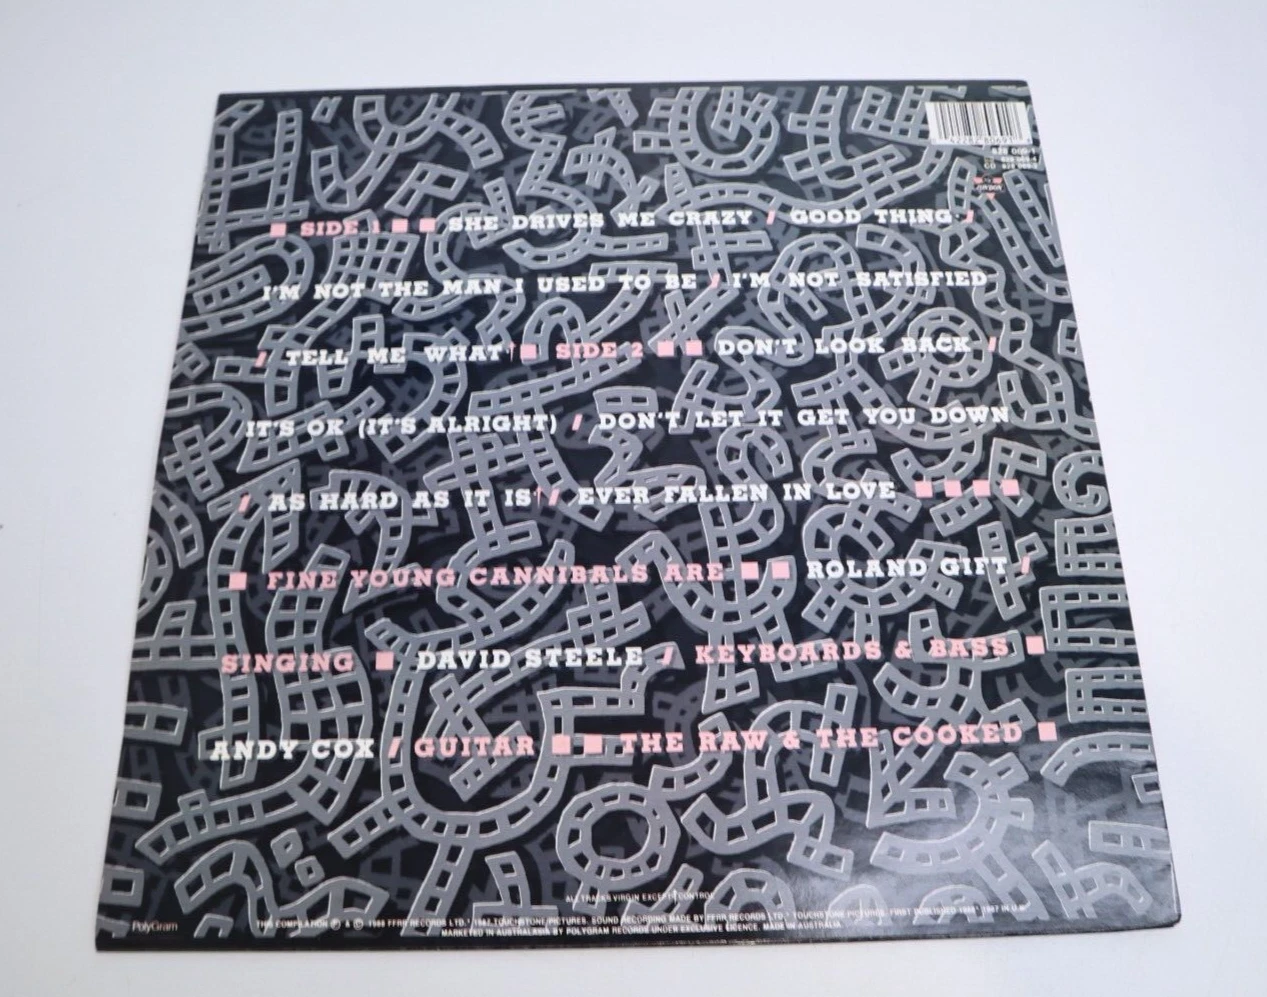 828 069-1
■ SIDE 1 ■ ■ SHE DRIVES ME CRAZY / GOOD THING /
I'M NOT THE MAN I USED TO BE / I'M NOT SATISFIED
/ TELL ME WHAT† ■ SIDE 2 ■ ■ DON'T LOOK BACK /
IT'S OK (IT'S ALRIGHT) / DON'T LET IT GET YOU DOWN
/ AS HARD AS IT IS† / EVER FALLEN IN LOVE ■ ■ ■ ■
■ FINE YOUNG CANNIBALS ARE ■ ■ ROLAND GIFT /
SINGING ■ DAVID STEELE / KEYBOARDS & BASS ■
ANDY COX / GUITAR ■ ■ THE RAW & THE COOKED ■
ALL TRACKS VIRGIN EXCEPT † CONTROL
PolyGram
THIS COMPILATION Ⓟ & © 1988 FFRR RECORDS LTD. * 1987 TOUCHSTONE PICTURES. SOUND RECORDING MADE BY FFRR RECORDS LTD * TOUCHSTONE PICTURES. FIRST PUBLISHED 1988 * 1987 IN U.K.
MARKETED IN AUSTRALASIA BY POLYGRAM RECORDS UNDER EXCLUSIVE LICENCE. MADE IN AUSTRALIA.